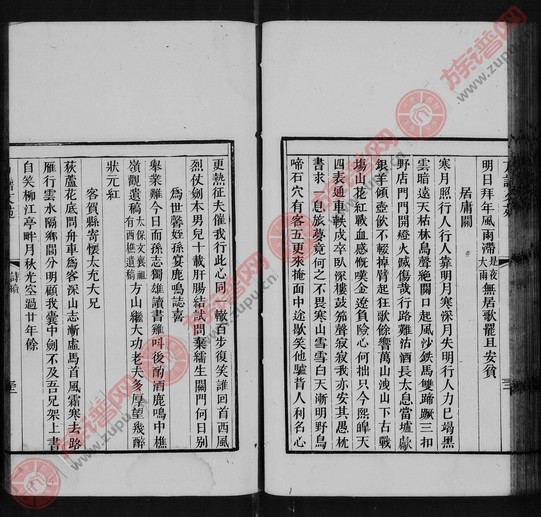 明日拜年風雨滯是夜大雨無居歌罷且安貧
居庸關
寒月照行人行人靠明月寒深月失明行人力已竭黑
雲暗遠天枯林鳥聲絕關口起風沙鉄馬雙蹄蹶三扣
野店門門開燈火滅傷哉行路難沽酒長太息當壚歇
銀羊傾壺飲不輟掉臂起狂歌餘響萬山洩山下古戰
塲山花紅戰血感慨嘆金遼負險心何拙只今熙皞天
四表通車軼戍卒臥深樓鼓角聲寂寂我亦安其愚枕
書求息旅夢竟何之不畏寒山雪雪白天漸明野鳥
啼石穴有客五更來掩面中途歇笑他驢背人利名心
更熱征夫催我行此心同一轍百步復笑誰回首西風
烈仗劍本男兒十載肝腸結試問棄繻生關門何日別
為世馨姪孫宴鹿鳴誌喜
舉業難今日而孫志獨雄讀書雞呌後酌酒鹿鳴中樵
嶺觀遺稿太保文襄祖有西樵遺稿方山繼大功老夫多厚望幾醉
狀元紅
客賀縣寄懷太充大兄
荻蘆花底問舟車為客深山志漸虛馬首風霜寒去路
雁行雲水隔鄉閭分明顧我囊中劍不及吾兄架上書
自笑柳江亭畔月秋光空過廿年餘
詩續